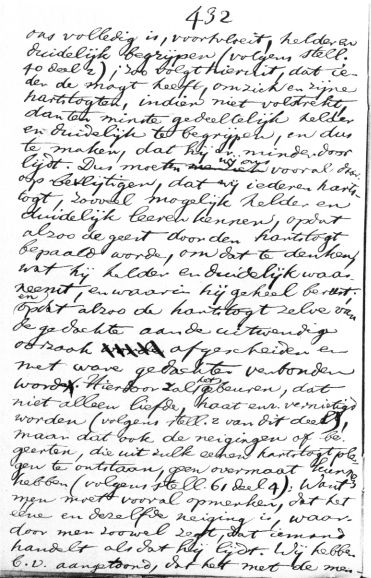 432
ons volledig is, voortvloeit, helder en
duidelijk begrijpen (volgens stell.
40 deel 2); zoo volgt hieruit, dat ie-
der de magt heeft, om zich en zijne
hartstogten, indien niet volstrekt,
dan ten minste gedeeltelijk helder
en duidelijk te begrijpen, en dus
te maken, dat hij er minder door
lijdt. Dus moeten wij ons vooral daar-
op bevlijtigen, dat wij iederen harts-
togt, zooveel mogelijk helder en
duidelijk leeren kennen, opdat
alzoo de geest door den hartstogt
bepaald worde, om dat te denken,
wat hij helder en duidelijk waar-
neemt, en waarin hij geheel berust.
en opdat alzoo de hartstogt zelve van
de gedachte aan de uitwendige
oorzaak afgescheiden en
met ware gedachten verbonden
worde. Hierdoor zal het gebeuren, dat
niet alleen liefde, haat enz. vernietigd
worden (volgens stell. 2 van dit deel),
maar dat ook de neigingen of be-
geerten, die uit zulk eenen hartstogt ple-
gen te ontstaan, geen overmaat kunnen
hebben (volgens stell. 61 deel 4). Want
men moet vooral opmerken, dat het
eene en dezelfde neiging is, waar-
door men zoowel zegt, dat iemand
handelt als dat hij lijdt. Wij hebben
b.v. aangetoond, dat het met de men-